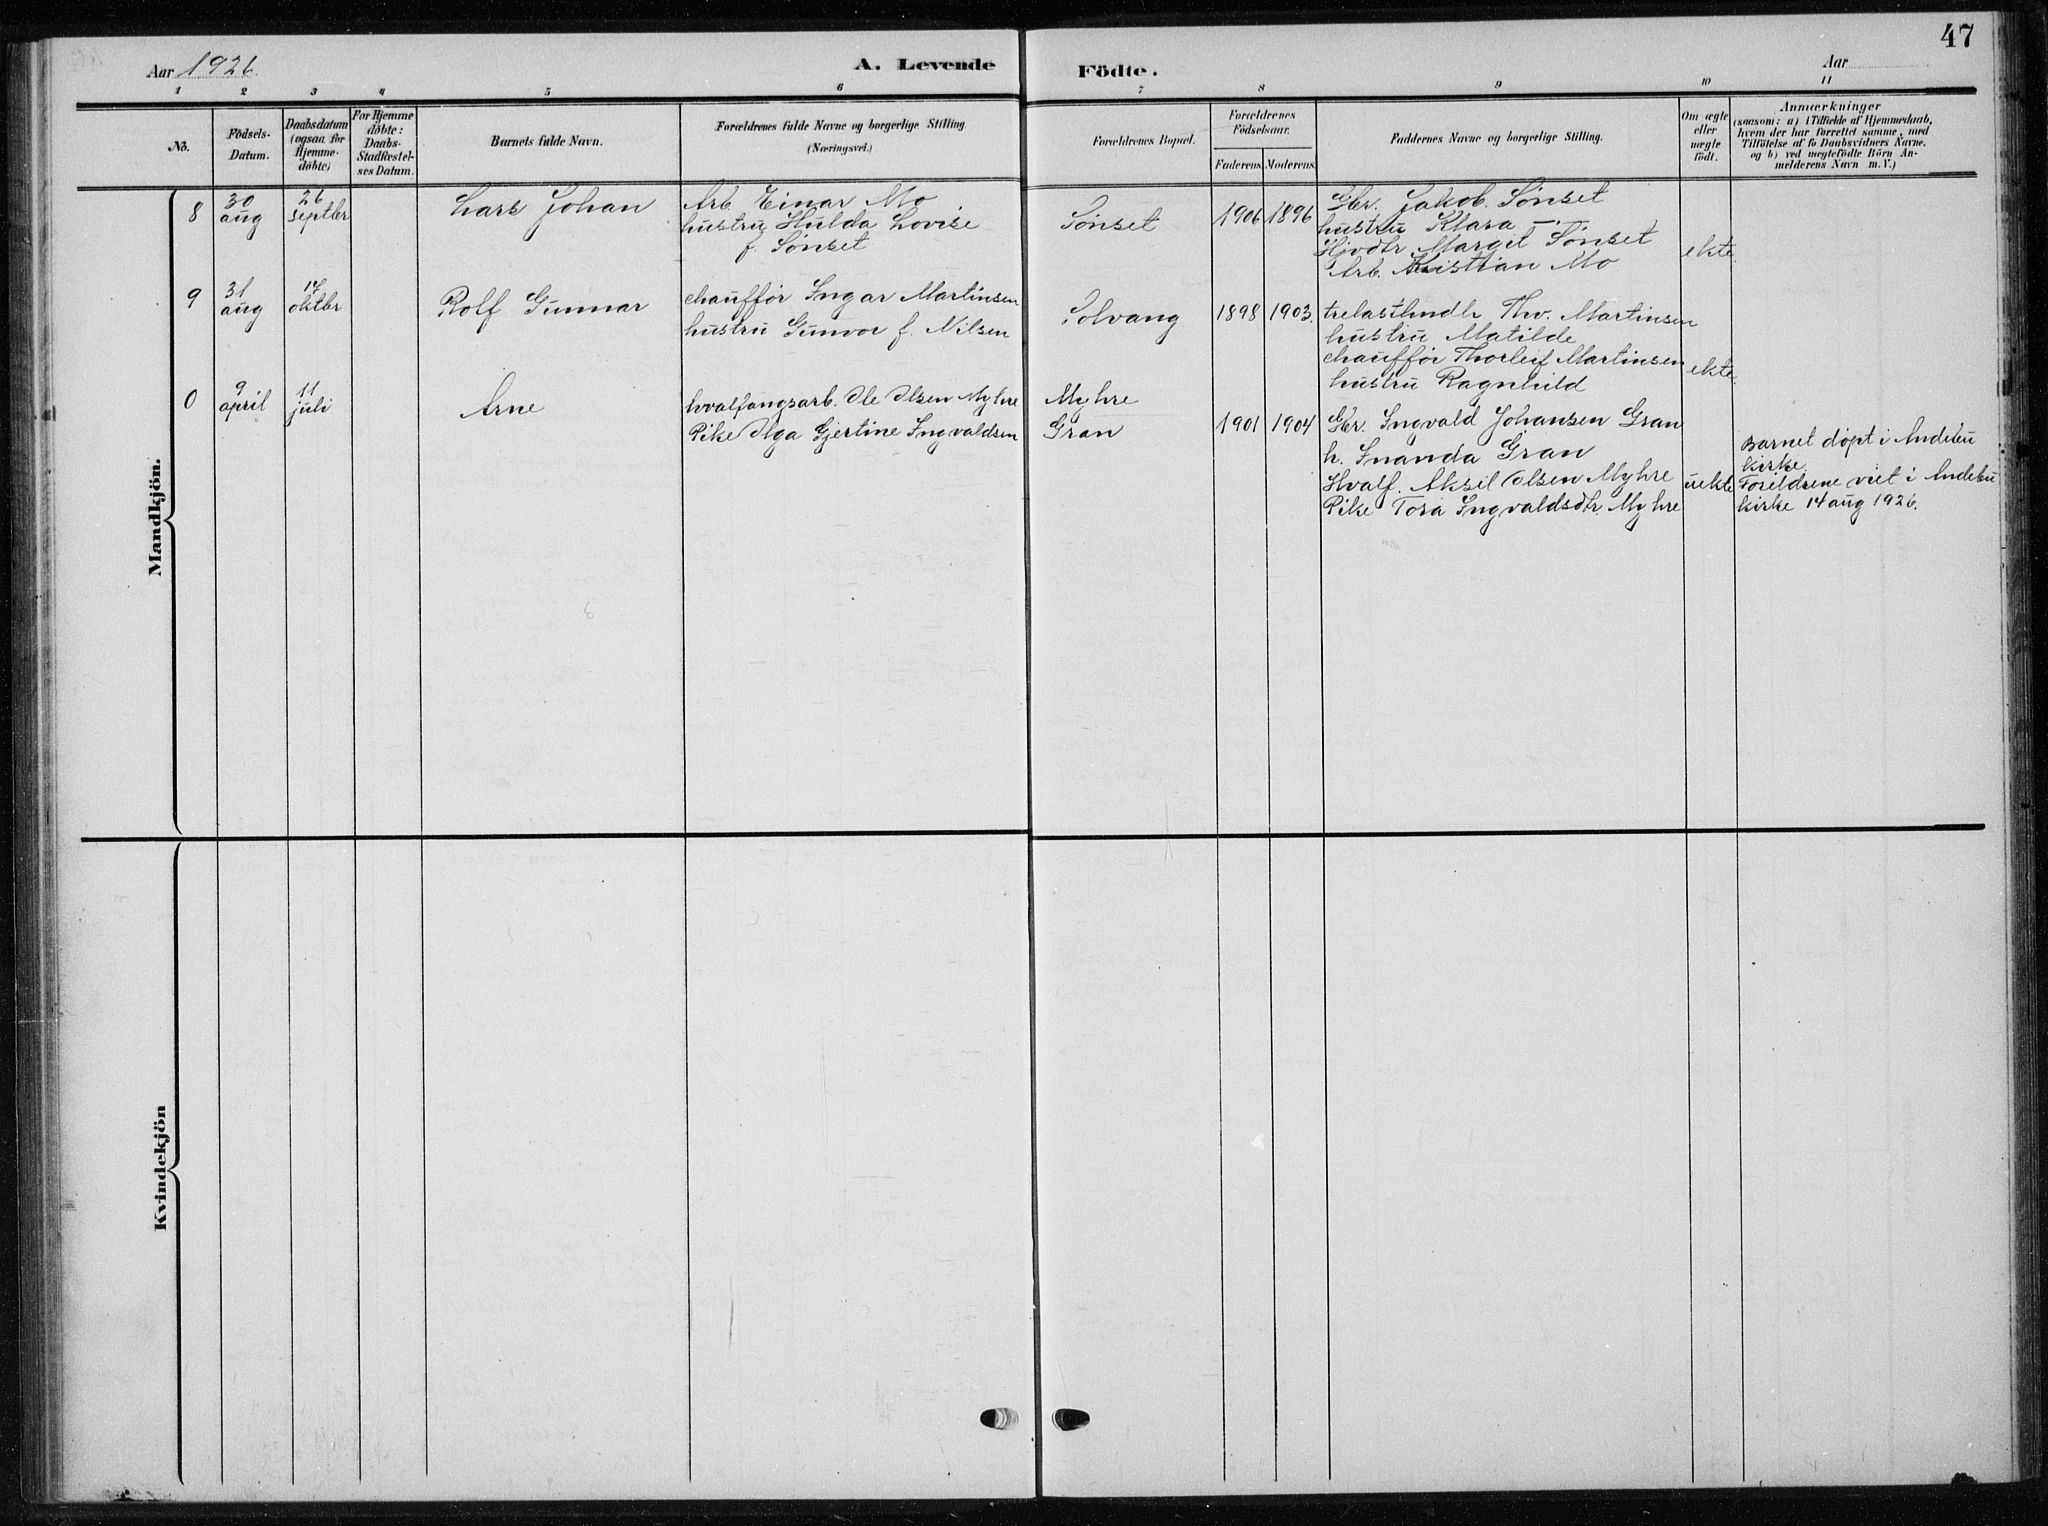 47
Aar 1926.
A. Levende Födte.
Aar
1 2 3 4 5 6 7 8 9 10 11
No.
Födsels-Datum.
Daabsdatum (ogsaa for Hjemme-döbte)
For Hjemme döbte: Daabs-Stadfæstel-ses Datum.
Barnets fulde Navn.
Forældrenes fulde Navne og borgerlige Stilling.
(Næringsvei.)
Forældrenes Bopæl.
Forældrenes Födselsaar.
Faderens. Moderens.
Faddernes Navne og borgerlige Stilling.
Om ægte eller uægte födt.
Anmærkninger
(saasom: a) i Tilfælde af Hjemmedaab,
hvem der har forrettet samme, med
Tilföielse af to Daabsvidners Navne,
og b) ved uegtefödte Börn An-
melderens Navn m. V.)
Mandkjön.
8
30 aug
26 septbr
Lars Johan
Arb. Einar Mo
hustru Hulda Lovise
f. Sønset
Sønset
1906 1896
Gbr. Jakob Sønset
hustru Klara —
Hjvdtr Margit Sønset
Arb. Kristian Mo
ekte
9
31 aug
17 oktbr
Rolf Gunnar
chauffør Ingar Martinsen
hustru Gunvor f. Nilsen
Solvang
1898 1903.
trelasthndlr Thv. Martinsen
hustru Matilde
chauffør Thorleif Martinsen
hustru Ragnhild
ekte.
0
9 april
11 juli
Arne
hvalfangsarb. Ole Olsen Myhre
Pike Olga Gjertine Ingvaldsen
Myhre
Gran
1901 1904
Gbr. Ingvald Johansen Gran
h. Inanda Gran
Hvalf. Aksil Olsen Myhre
Pike Tora Ingvaldsdtr. Myhre
uekte
Barnet døpt i Andebu
kirke.
Foreldrene viet i Andebu
kirke 14 aug 1926.
Kvindekjön